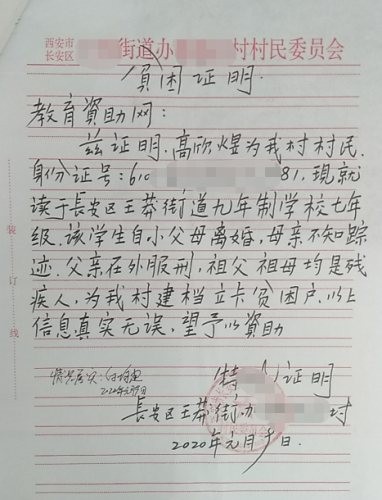 西安市
长安区 街道办 村村民委员会
贫困证明.
教育資助网:
兹证明,高欣煜为我村村民.
身份证号:610 81,现就
读于長安区王莽街道九年制学校七年
级.该学生自小父母离婚,母亲不知踪
迹.父亲在外服刑,祖父祖母均是残
疾人,为我村建档立卡贫困户.以上
信息真实无误,望予以資助
情况属实:
特 证明
長安区王莽街办 村
2020年元月 日.
装订线